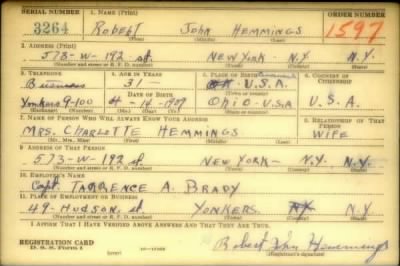 SERIAL NUMBER 1. NAME (Print) ORDER NUMBER
3264 ROBERT JOHN HEMMINGS 1597
(First) (Middle) (Last)
2. ADDRESS (Print)
573-W-192 st. NEW YORK N.Y. N.Y.
(Number and street or R. F. D. number) (Town) (County) (State)
3. TELEPHONE 4. AGE IN YEARS 5. PLACE OF BIRTH 6. COUNTRY OF CITIZENSHIP
Business 31 U.S.A.
DATE OF BIRTH
Yonkers 9-100 4-14-1909 Ohio-U.S.A U.S.A.
(Exchange) (Number) (Mo.) (Day) (Yr.) (State or country)
7. NAME OF PERSON WHO WILL ALWAYS KNOW YOUR ADDRESS 8. RELATIONSHIP OF THAT PERSON
MRS. CHARLOTTE HEMMINGS WIFE
(Mr., Mrs., Miss) (First) (Middle) (Last)
9. ADDRESS OF THAT PERSON
573-W-192 st NEW YORK- N.Y. N.Y.
(Number and street or R. F. D. number) (Town) (County) (State)
10. EMPLOYER'S NAME
Capt. TARRENCE A. BRADY
11. PLACE OF EMPLOYMENT OR BUSINESS
49-HUDSON, st YONKERS. N.Y.
(Number and street or R. F. D. number) (Town) (County) (State)
I AFFIRM THAT I HAVE VERIFIED ABOVE ANSWERS AND THAT THEY ARE TRUE.
REGISTRATION CARD
D. S. S. Form 1 (over) Robert John Hemmings
(Registrant's signature)